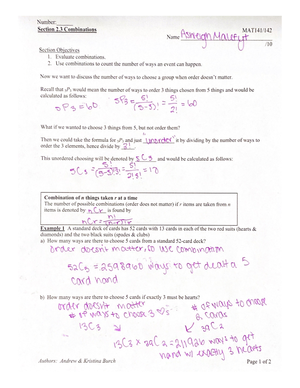 Number:______
Section 2.3 Combinations MAT141/142
Name
/10
Section Objectives
1. Evaluate combinations.
2. Use combinations to count the number of ways an event can happen.
Now we want to discuss the number of ways to choose a group when order doesn't matter.
Recall that ₅P₃ would mean the number of ways to order 3 things chosen from 5 things and would be
calculated as follows:
5P3 = 60 5P3 = 5!/(5-3)! = 5!/2! = 60
What if we wanted to choose 3 things from 5, but not order them?
Then we could take the formula for ₅P₃ and just unorder it by dividing by the number of ways to
order the 3 elements, hence divide by 3!
This unordered choosing will be denoted by 5C3 and would be calculated as follows:
5C3 = 5!/(5-3)!3! = 5!/2!3! = 10
Combination of n things taken r at a time
The number of possible combinations (order does not matter) if r items are taken from n
items is denoted by nCr is found by
nCr =
Example 1 A standard deck of cards has 52 cards with 13 cards in each of the two red suits (hearts &
diamonds) and the two black suits (spades & clubs)
a) How many ways are there to choose 5 cards from a standard 52-card deck?
order doesn't matter so use combination
52C5 = 2598960 ways to get dealt a 5
card hand
b) How many ways are there to choose 5 cards if exactly 3 must be hearts?
order doesn't matter
# of ways to choose 3 # of ways to choose
13C3 2 cards
13C3 × = 211926 ways to get
hand w/ exactly 3 hearts
Authors: Andrew & Kristina Burch Page 1 of 2